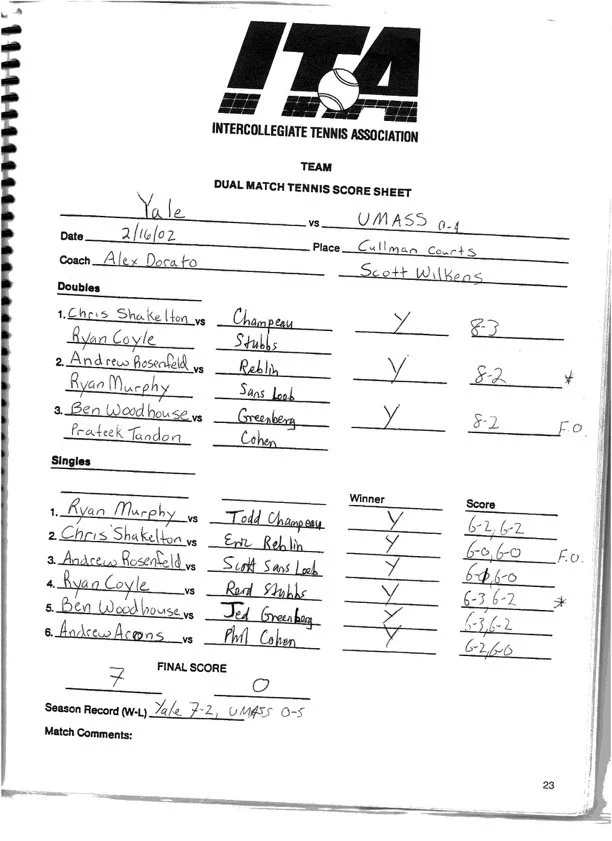 ITA
INTERCOLLEGIATE TENNIS ASSOCIATION
TEAM
DUAL MATCH TENNIS SCORE SHEET
Yale vs UMASS 0-4
Date 2/16/02 Place Cullman Courts
Coach Alex Dorato Scott Wilkens
Doubles
1. Chris Shakelton vs Champeau Y 8-3
Ryan Coyle Stubbs
2. Andrew Rosenfeld vs Reblin Y 8-2 *
Ryan Murphy Sans Loeb
3. Ben Woodhouse vs Greenberg Y 8-2 F.O.
Prateek Tandon Cohen
Singles
Winner Score
1. Ryan Murphy vs Todd Champeau Y 6-2, 6-2
2. Chris Shakelton vs Eric Reblin Y 6-0, 6-0 F.O.
3. Andrew Rosenfeld vs Scott Sans Loeb Y 6-0, 6-0
4. Ryan Coyle vs Reed Stubbs Y 6-3, 6-2 *
5. Ben Woodhouse vs Jed Greenberg Y 6-3, 6-2
6. Andrew Aarons vs Phil Cohen Y 6-2, 6-0
FINAL SCORE
7 0
Season Record (W-L) Yale 7-2, UMASS 0-5
Match Comments:
23